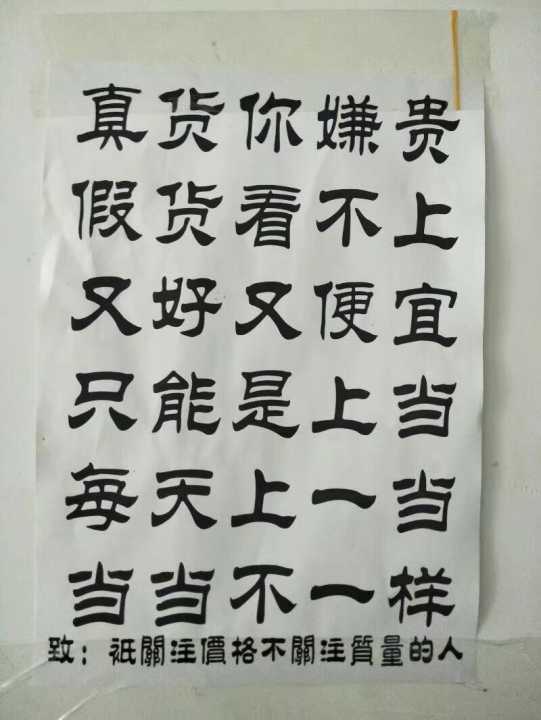 真货你嫌贵
假货看不上
又好又便宜
只能是上当
每天上一当
当当不一样
致：祇關注價格不關注質量的人